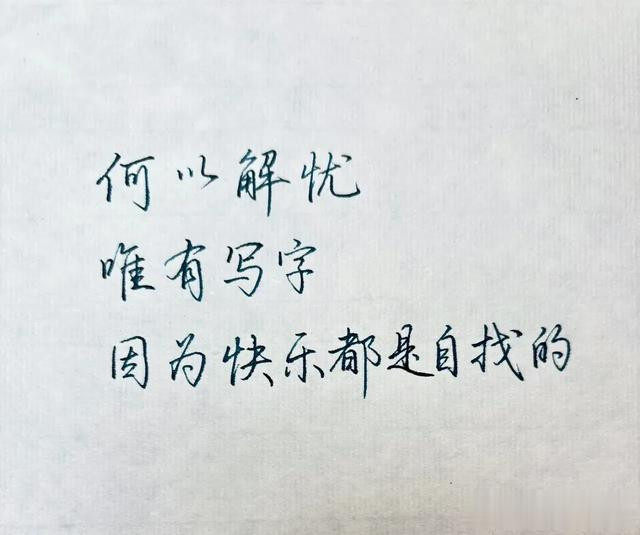 何以解忧
唯有写字
因为快乐都是自找的